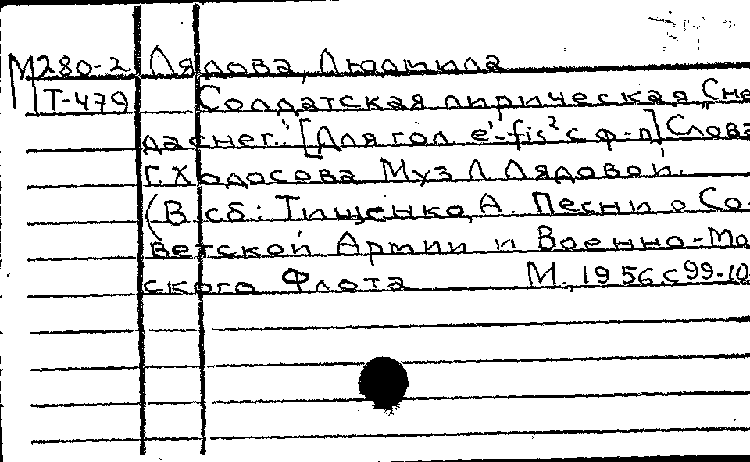 М280-2 Лядова, Людмила
Т-479 Солдатская лирическая „Сне
да снег.." [Для гол e'-fis² с ф-п] Слова
Г. Ходосова Муз Л Лядовой.
(В сб: Тищенко, А. Песни о Со-
ветской Армии и Военно-Мо
ского Флота М., 1956 с 99-10